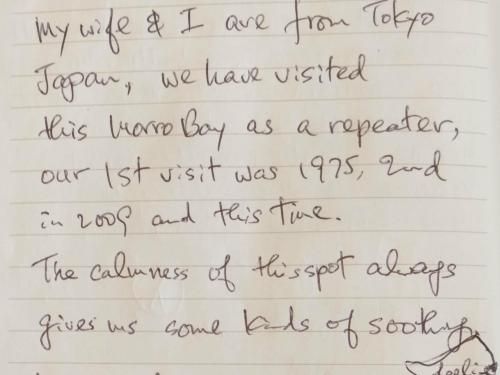 My wife & I are from Tokyo
Japan, we have visited
this Morro Bay as a repeater,
our 1st visit was 1975, 2nd
in 2009 and this time.
The calmness of this spot always
gives us some kinds of soothing